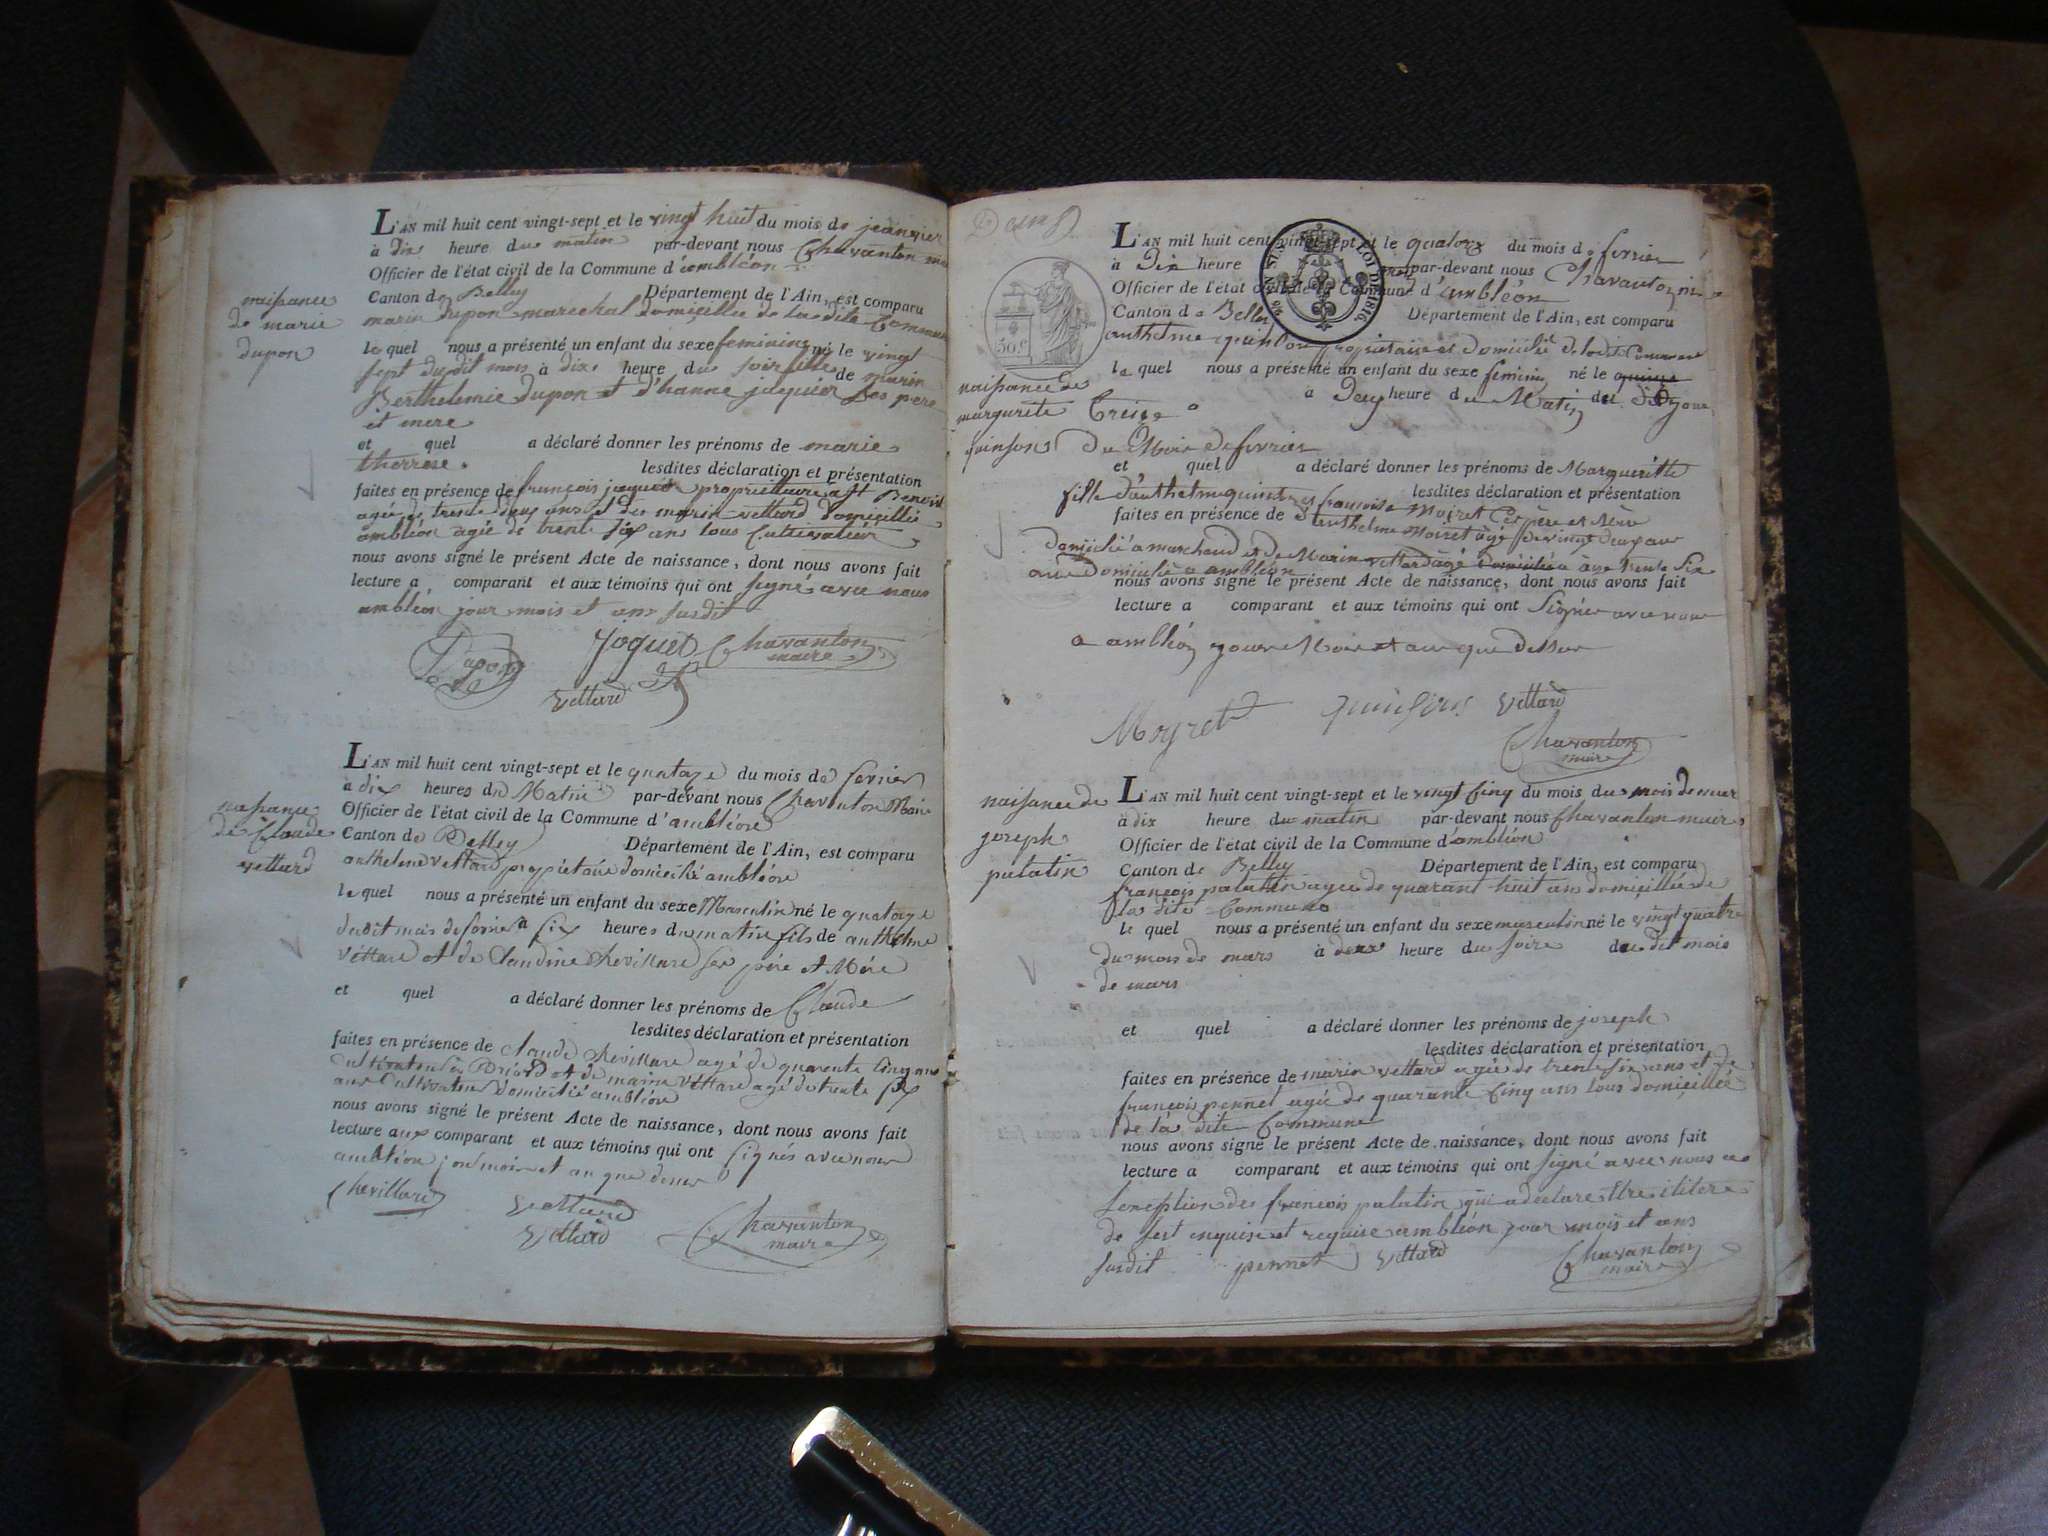 naissance
de marie
dupon
L'AN mil huit cent vingt-sept et le vingt huit du mois de jeanvier
à dix heure du matin par-devant nous Chavanton
Officier de l'état civil de la Commune d'ambléon
Canton de Belley Département de l'Ain, est comparu
marin dupon marechal domiçilléе de la dite Commune
le quel nous a présenté un enfant du sexe feminine né le vingt
sept dudit mois à dix heure du soir fille de marin
Berthelemie dupon et d'hanne jaquier Ses pere
et mere
et quel a déclaré donner les prénoms de marie
therrese.
lesdites déclaration et présentation
faites en présence de françois proprietaire a St Benoit
agée de trente deux ans et de marin vettard domiçillié
ambléon agée de trent six ans tous Cultivateur
nous avons signé le présent Acte de naissance, dont nous avons fait
lecture a comparant et aux témoins qui ont signé avec nous
ambléon jour mois et ans susdit
Dupon Joguet Chavanton
maire
Vettard
naissance
de Claude
vettard
L'AN mil huit cent vingt-sept et le quatoze du mois de fevrier
à dix heures du Matin par-devant nous Chavanton Maire
Officier de l'état civil de la Commune d'ambléon
Canton de Belley Département de l'Ain, est comparu
anthelme Vettard propiétaire domicilié ambléon
le quel nous a présenté un enfant du sexe Masculin né le quatoze
dudit mois de fevrier à six heures du matin fils de anthelme
Vettard et de Claudine Chevillard ses père et Mére
et quel a déclaré donner les prénoms de Claude
lesdites déclaration et présentation
faites en présence de Claude Chevillard agé de quarente Cinq ans
Cultivateur a Briord et de marin Vettard agé de trente six
ans Cultivateur domicilié ambléon
nous avons signé le présent Acte de naissance, dont nous avons fait
lecture aux comparant et aux témoins qui ont signés avec nous
ambléon jour mois et an que dessus
Chevillard Vettard Chavanton
Vettard maire
50 c.
LOI DE 1816
naissance de
margurite
quinson
L'AN mil huit cent vingt-sept et le quatorz du mois de fevrier
à Dix heure par-devant nous Chavanton
Officier de l'état civil de la Commune d'ambléon
Canton de Belley Département de l'Ain, est comparu
anthelme quinson propriétaire et domicilié de ladite Commune
le quel nous a présenté un enfant du sexe feminin né le quinze
Treize à Deux heure du Matin du
du Mois de fevrier
et quel a déclaré donner les prénoms de Margueritte
fille d'anthelme quinson et françoise Moiret Ces père et Mère
lesdites déclaration et présentation
faites en présence de d'anthelme Moiret âgé de vingt deux ans
domicilié a marchand et de Marin vettard âgé domicilié à âge trente six
ans domicilié a ambléon
nous avons signé le présent Acte de naissance, dont nous avons fait
lecture a comparant et aux témoins qui ont Signée avec nous
a ambléon jour Mois et an que dessus
Moyret quinson Vettard
Chavanton
maire
naissance de
joseph
palatin
L'AN mil huit cent vingt-sept et le vingt Cinq du mois du mois de mar
à dix heure du matin par-devant nous Chavanton maire
Officier de l'état civil de la Commune d'ambléon
Canton de Belley Département de l'Ain, est comparu
françois palattin agée de quarant huit ans domiçillée de
la dite Commune
le quel nous a présenté un enfant du sexe masculin né le vingt quatre
du mois de mars à deux heure du soire du dit mois
de mars
et quel a déclaré donner les prénoms de joseph
lesdites déclaration et présentation
faites en présence de marin vettard agée de trente six ans et de
françois pennet agée de quarante Cinq ans tous domiçillée
de la dite Commune
nous avons signé le présent Acte de naissance, dont nous avons fait
lecture a comparant et aux témoins qui ont signé avec nous a
lexeption des françois palatin qui a declare Etre ilitere
de sest enquise et requise ambléon jour mois et ans
susdit pennet Vettard Chavanton
maire